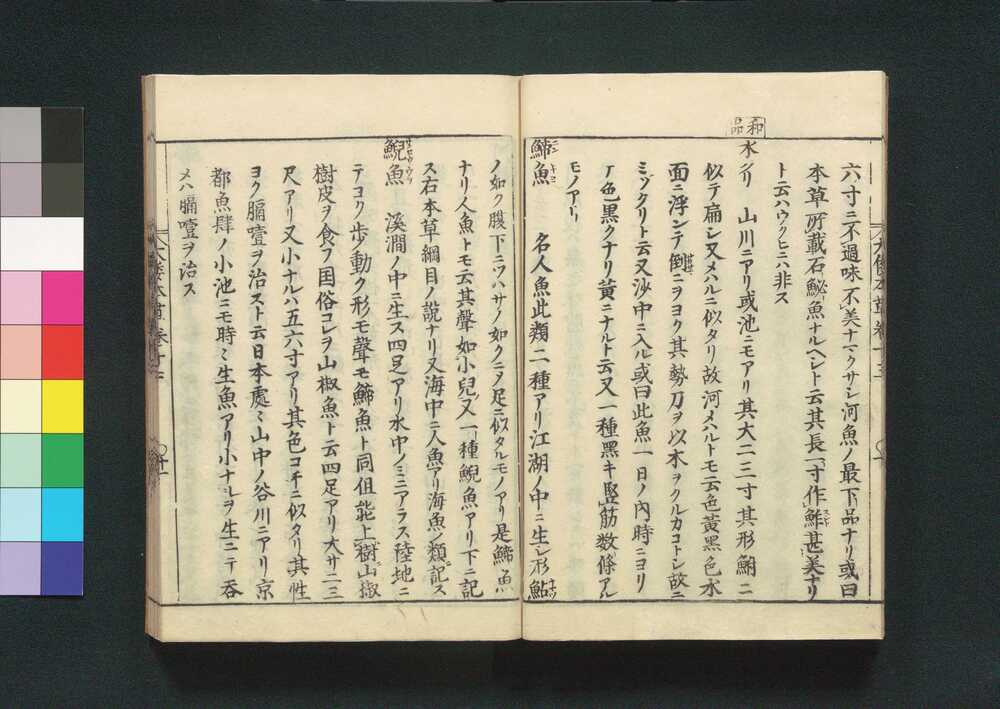 六寸ニ不過味不美ナマクサシ河魚ノ最下品ナリ或曰
本草所載石鮅魚ナルヘシト云其長一寸作鮓甚美ナリ
ト云ハウクヒニハ非ス
和品
水クリ 山川ニアリ或池ニモアリ其大二三寸其形鮒ニ
似テ扁シ又メハルニ似タリ故河メハルトモ云色黃黑色水
面ニ浮ンテ倒ニヲヨク其勢刀ヲ以木ヲクルカコトシ故ニ
ミヅクリト云又沙中ニ入ル或曰此魚一日ノ內時ニヨリ
テ色黑クナリ黃ニナルト云又一種黑キ竪筋数條アル
モノアリ
鯑魚 名人魚此類二種アリ江湖ノ中ニ生シ形鮎
ノ如ク腹下ニツハサノ如クニヲ足ニ似タルモノアリ是鯑魚
ナリ人魚トモ云其聲如小兒又一種鯢魚アリ下ニ記
ス右本草綱目ノ說ナリ又海中ニ人魚アリ海魚ノ類記ス
鯢魚 溪澗ノ中ニ生ス四足アリ水中ノミニアラス陸地ニ
テヨク歩ノ動ク形モ聲モ鯑魚ト同但能上樹山椒
樹皮ヲ食フ国俗コレヲ山椒魚ト云四足アリ大サ二三
尺アリ又小ナルハ五六寸アリ其色コチニ似タリ其性
ヨク膈噎ヲ治スト云日本處ミ山中ノ谷川ニアリ京
都魚肆ノ小池ニモ時ミ生魚アリ小ナルヲ生ニテ吞
メハ膈噎ヲ治ス
大倭本草 卷十三